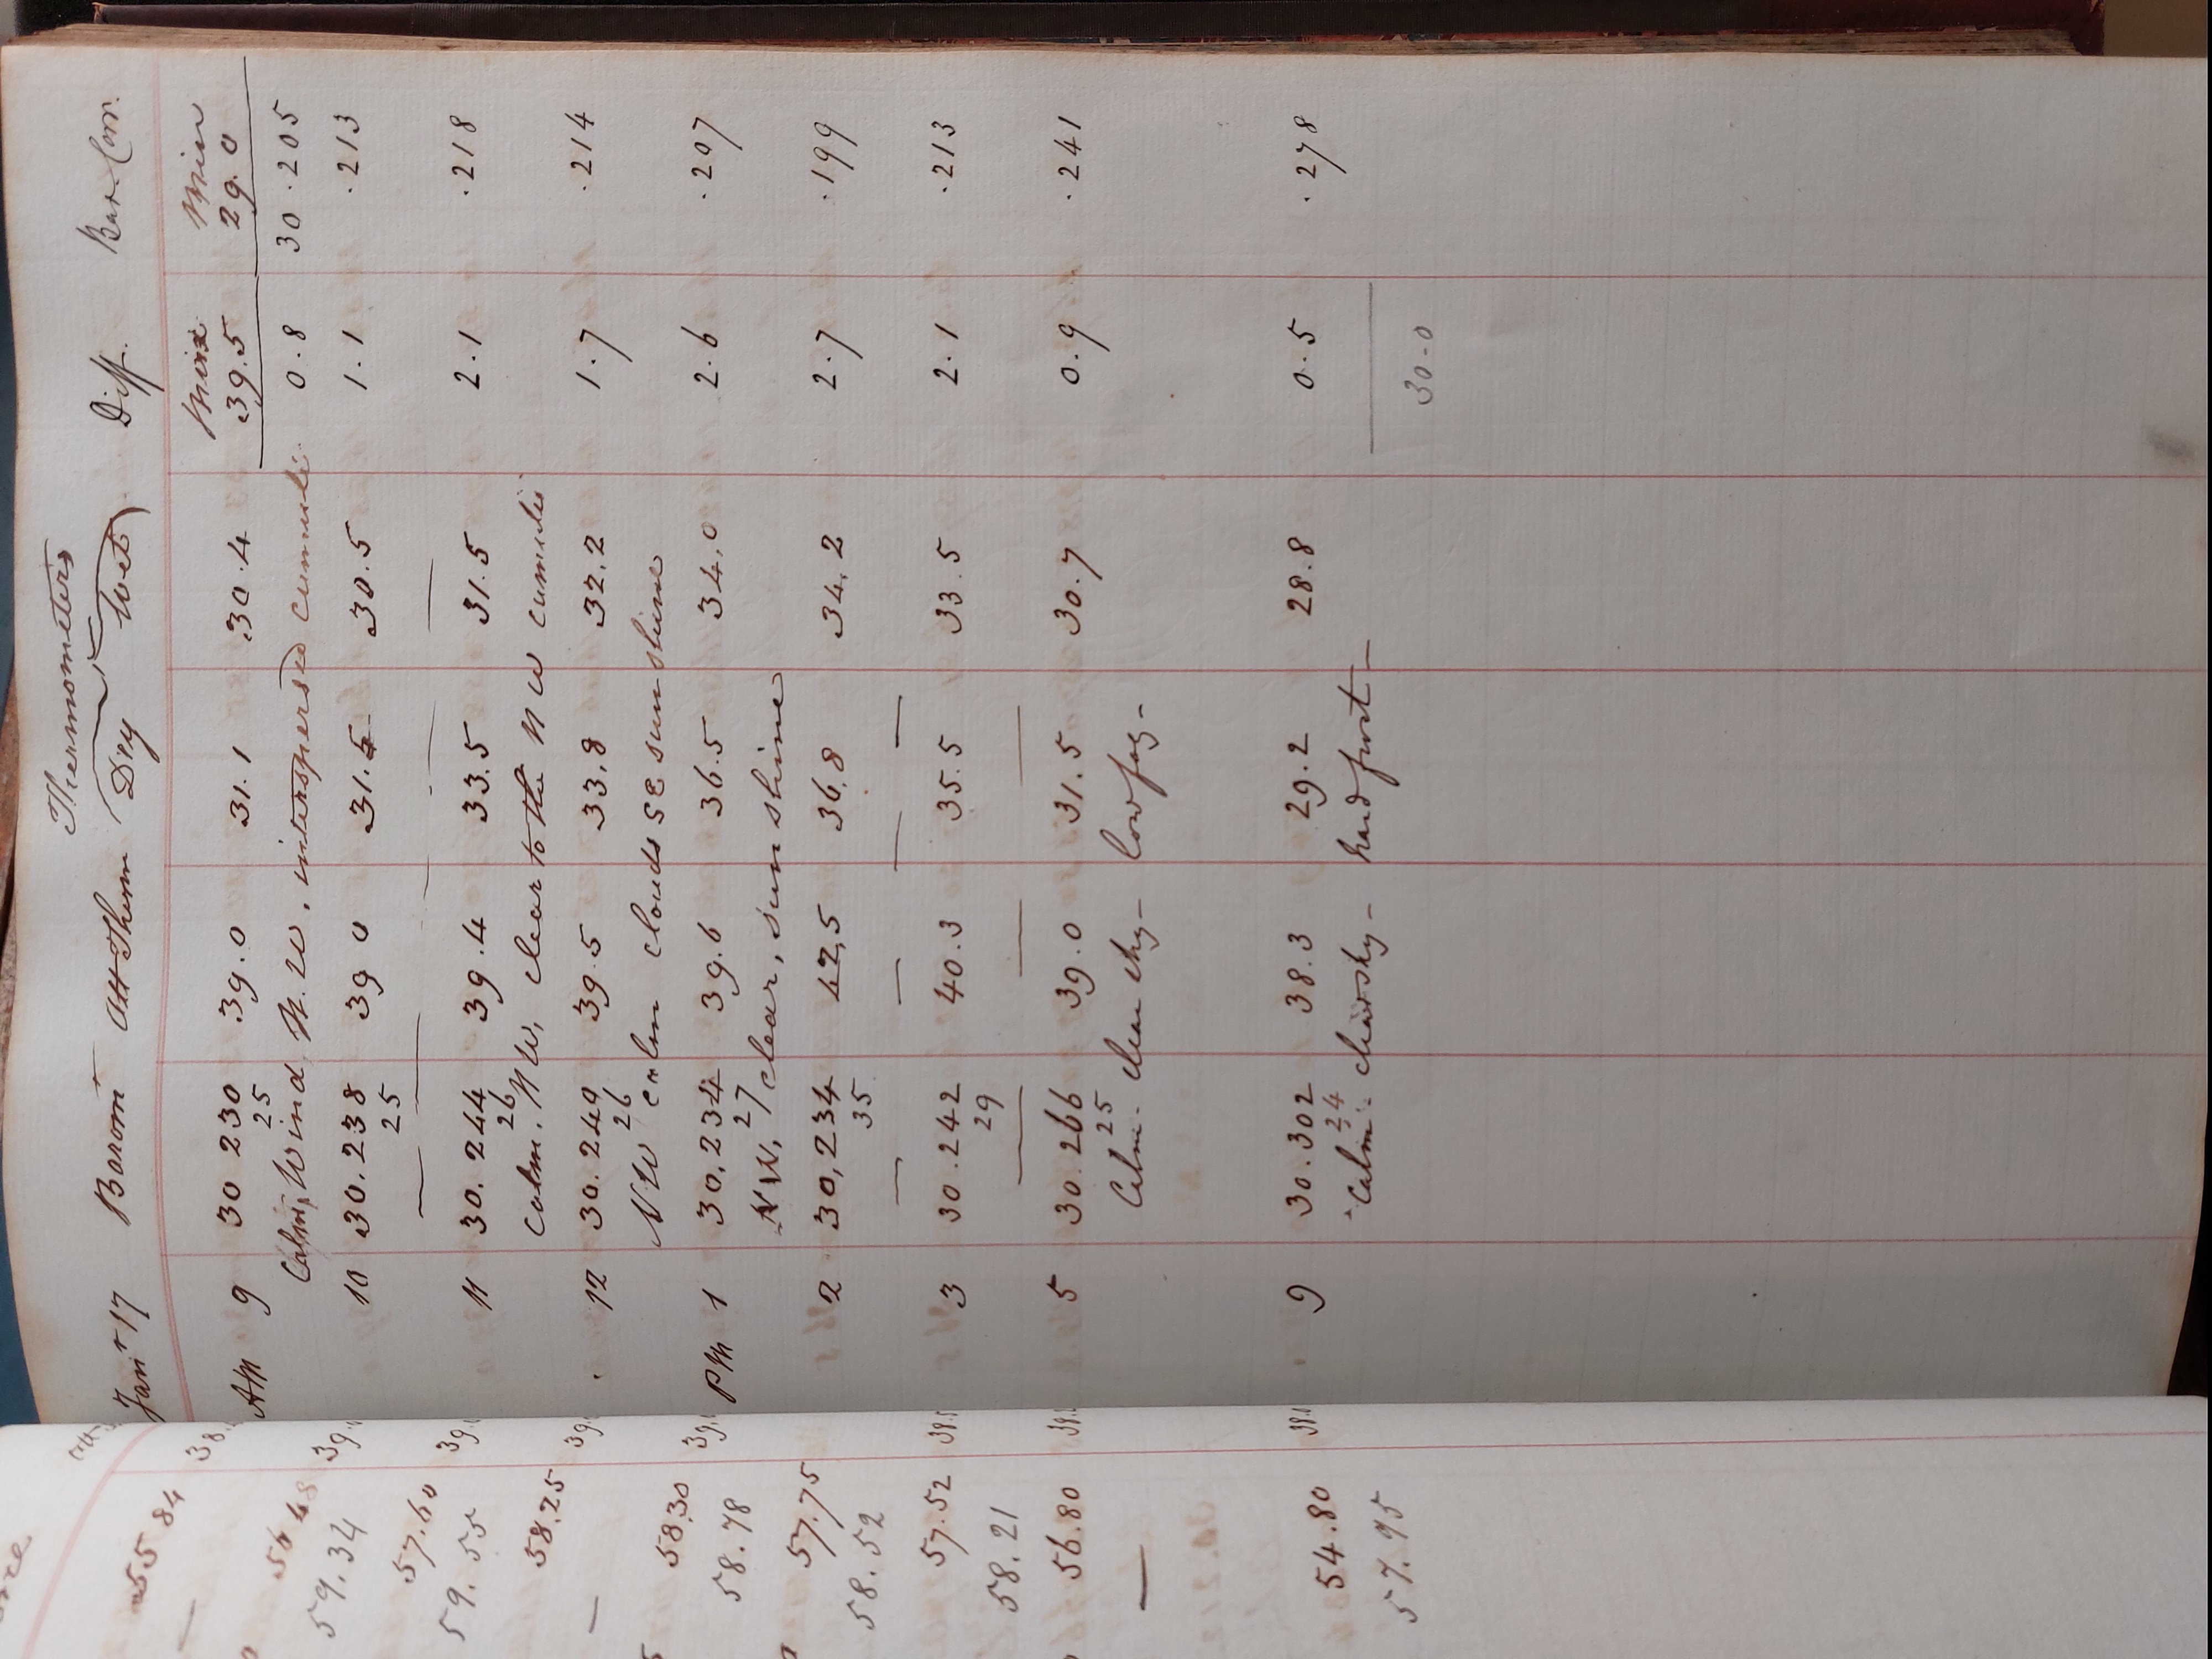 55 84
56 48
59.34
57.60
59.55
58.25
58.30
58.78
57.75
58.52
57.52 38.5
58.21
56.80
54.80
57.95
Thermometers
Janr 17 Baromr Att Therm Dry Wet Diff. Bar. Corr.
Max Min
AM 9 30 230 39.0 31.1 30.4 39.5 29.0
25
Calm, Wind N.W. interspersed cumuli 0.8 30.205
10 30.238 39 0 31.5 30.5 1.1 .213
25
11 30.244 39.4 33.5 31.5 2.1 .218
26
Calm. NW, clear to the NW cumuli
12 30.240 39.5 33.8 32.2 1.7 .214
26
NW calm clouds SE sunshine
PM 1 30,234 39.6 36.5 34.0 2.6 .207
27
NW, clear, sunshine
2 30,234 42,5 36,8 34,2 2.7 .199
35
3 30.242 40.3 35.5 33.5 2.1 .213
29
5 30.266 39.0 31.5 30.7 0.9 .241
25
Calm - clear sky - low fog -
9 30.302 38.3 29.2 28.8 0.5 .278
24
Calm - clear sky - hard frost -
30-0